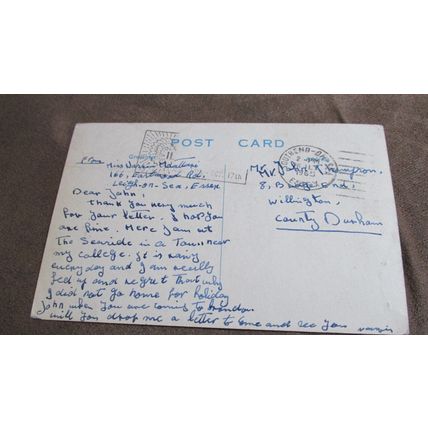 POST CARD
From
Miss
166, Eastwood Rd,
Leigh-on-Sea, Essex
Dear John,
Thank you very much
for your letter. I hope you
are fine. Here I am at
The Seaside in a Town near
my college. It is rainy
everyday and I am really
fed up and regret that why
I did not go home for holiday
John when you are coming to London
will you drop me a letter to come and see you
SOUTHEND-ON-SEA
1965
ESSEX
Mr. John
8,
Willington,
County Durham